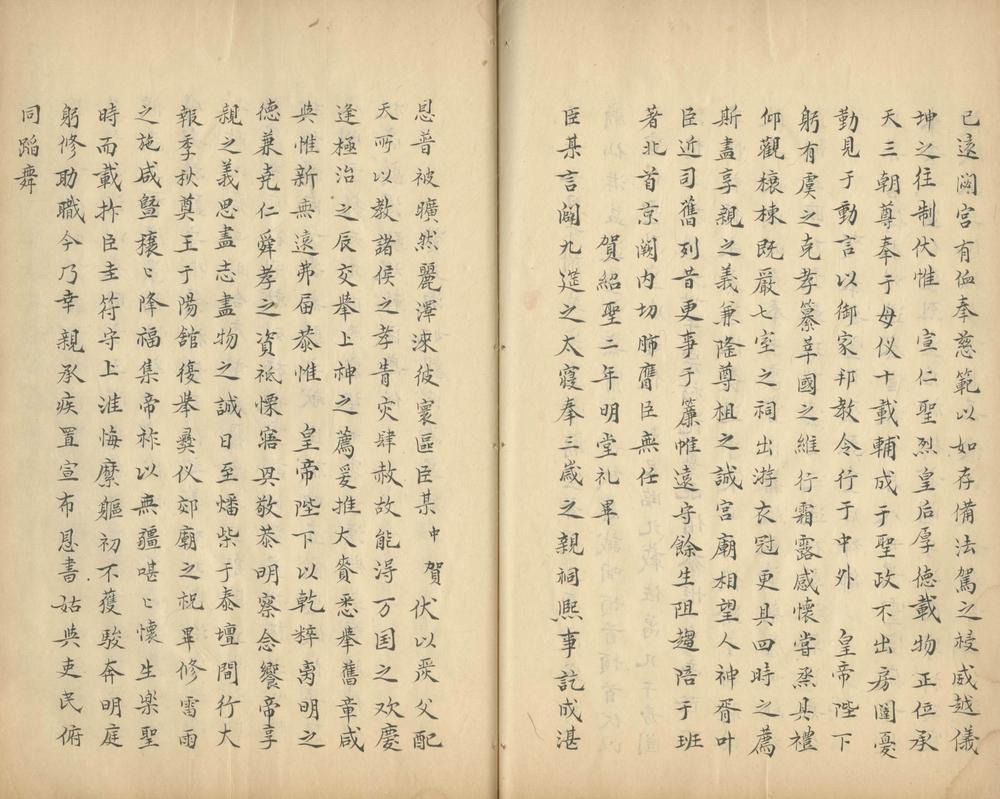 已遠閟宮有侐奉慈範以如存備法駕之祲威越儀
坤之往制伏惟　宣仁聖烈皇后厚德載物正位承
天三朝尊奉于母仪十載輔成于聖政不出房闥憂
勤見于動言以御家邦教令行于中外　皇帝陛下
躬有虞之克孝纂萃國之維行霜露感懷嘗烝具禮
仰觀榱棟既嚴七室之祠出游衣冠更具四時之薦
斯盡享親之義兼隆尊祖之誠宮廟相望人神胥叶
臣近司舊列昔更事于簾帷遠守餘生阻趨陪于班
著北首京闕内切肺膺臣無任
賀紹聖二年明堂礼畢
臣某言闢九筵之太寢奉三歲之親祠熙事訖成湛
恩普被曠然麗澤浹彼寰區臣某中賀伏以嚴父配
天所以教諸侯之孝眚灾肆赦故能淂万国之欢慶
逢極治之辰交舉上神之薦爰推大賚悉舉舊章咸
與惟新無遠弗届恭惟　皇帝陛下以乾粹离明之
德兼堯仁舜孝之資祗慄寤興敬恭明察念饗帝享
親之義思盡志盡物之誠日至燔柴于泰壇間行大
報季秋奠王于陽舘復舉彝仪郊廟之祝畢修雷雨
之施咸曁穰〻降福集帝祚以無疆啿〻懷生樂聖
時而載抃臣圭符守土淮海縻軀初不獲駿奔明庭
躬修助職今乃幸親承疾置宣布恩書姑與吏民俯
同蹈舞